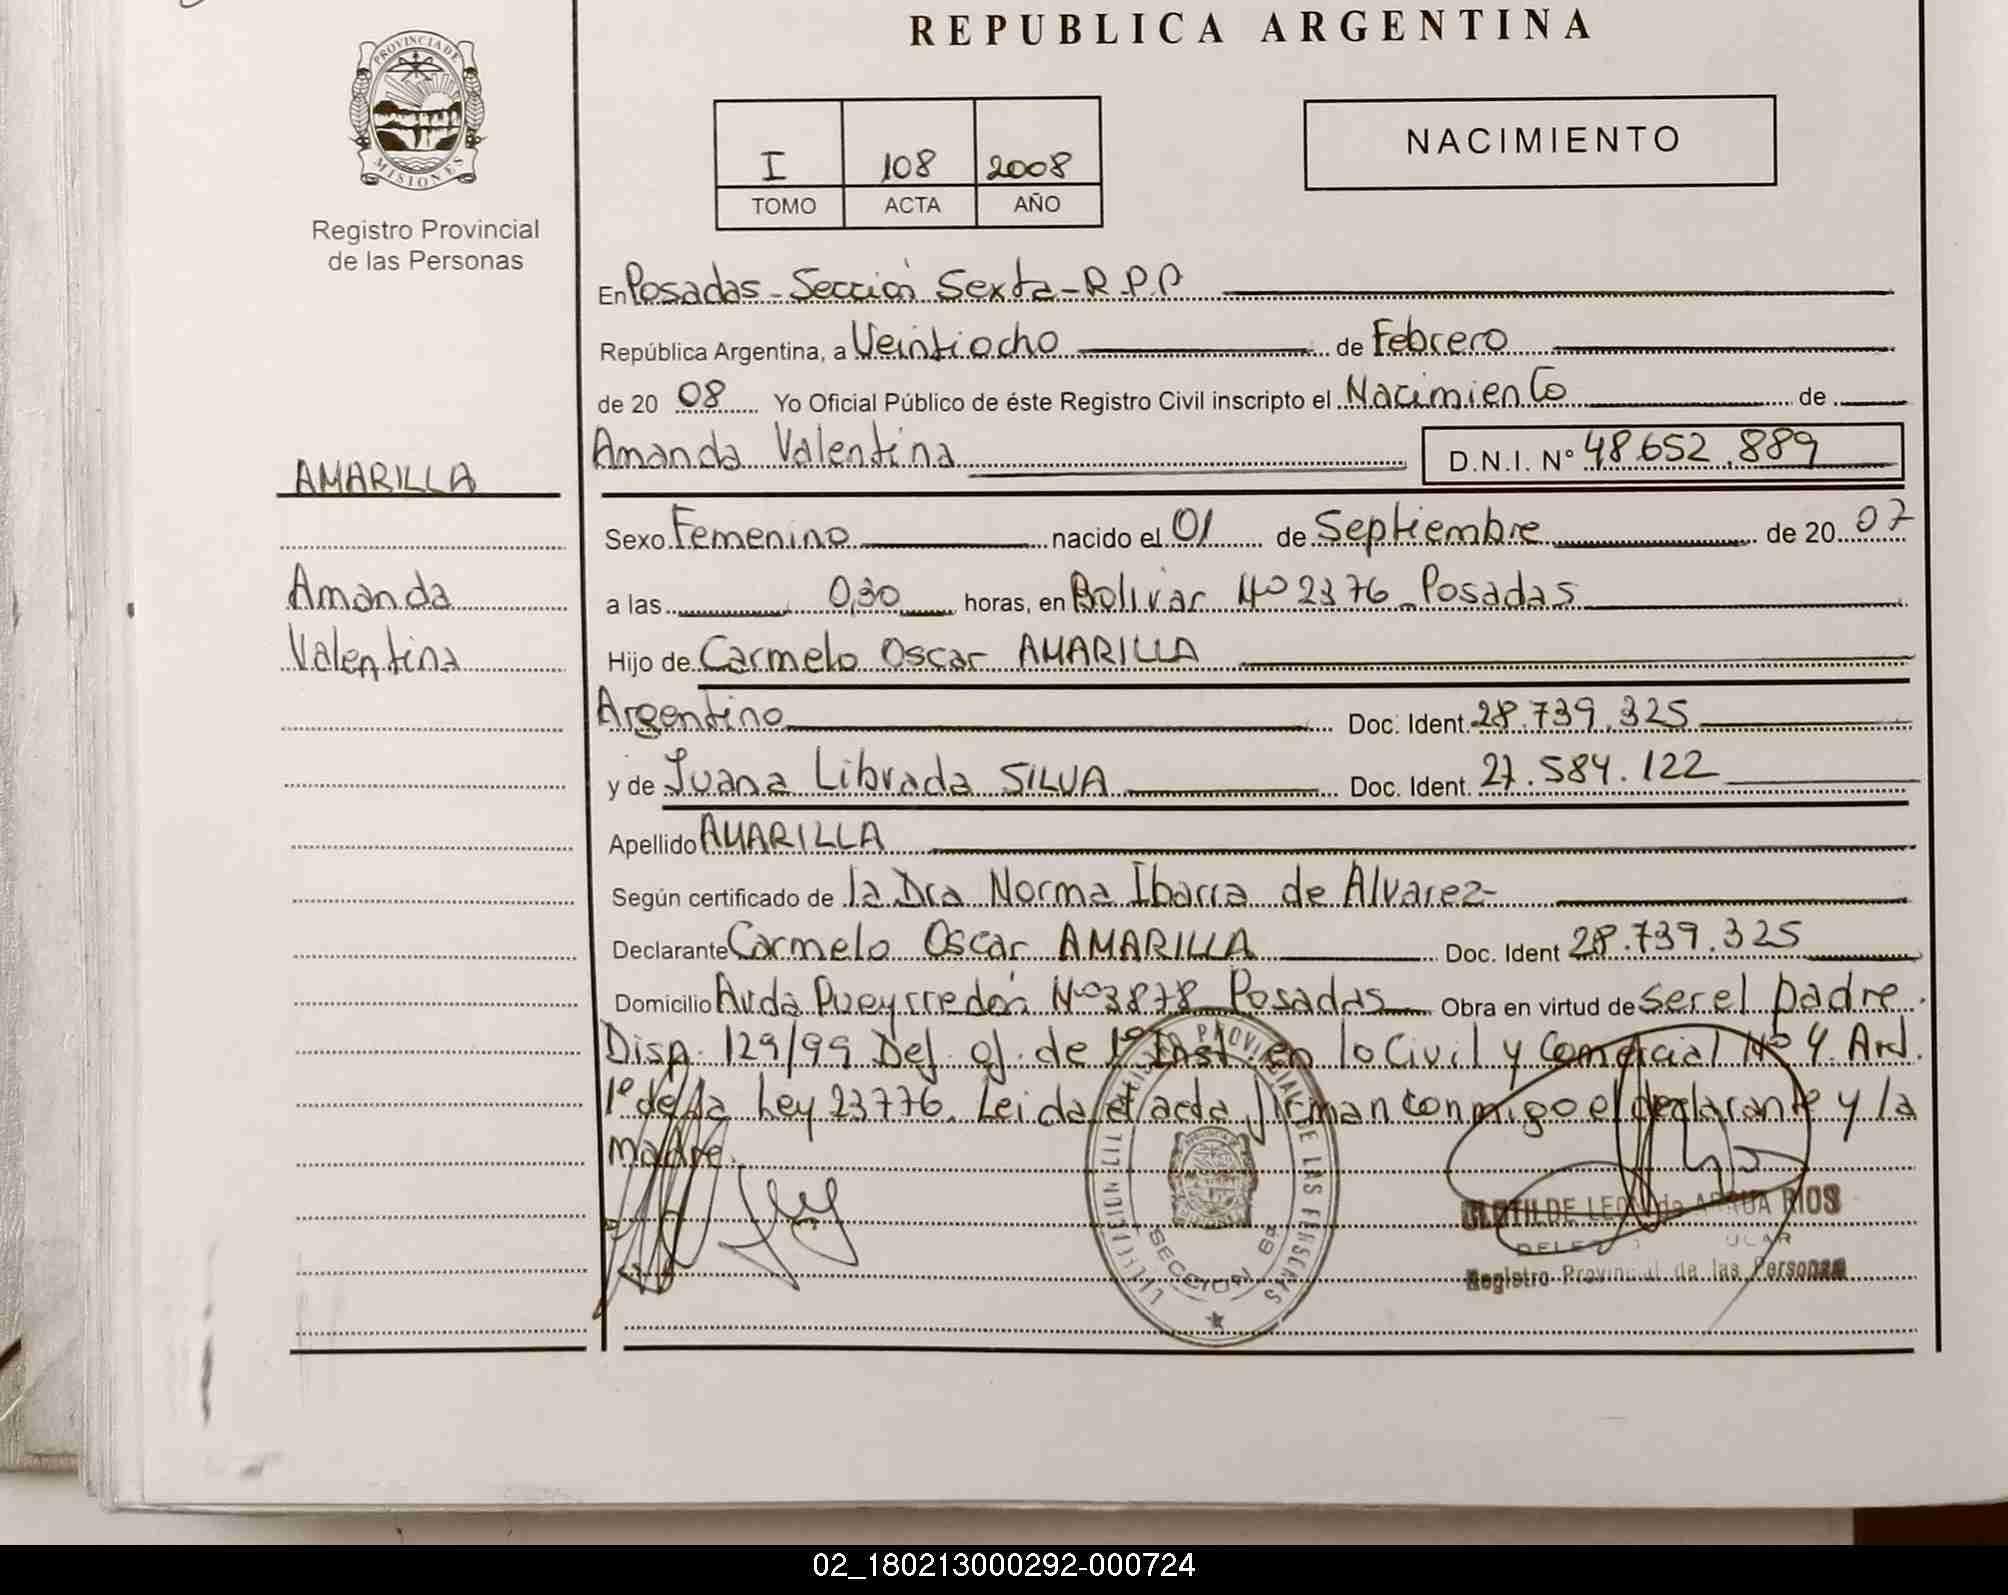 REPUBLICA ARGENTINA
PROVINCIA DE
MISIONES
Registro Provincial
de las Personas
I 108 2008
TOMO ACTA AÑO
NACIMIENTO
En Posadas - Sección Sexta - R.P.P
República Argentina, a Veintiocho de Febrero
de 20 08 Yo Oficial Público de éste Registro Civil inscripto el Nacimiento de
Amanda Valentina D.N.I. N° 48.652.889
AMARILLA
Amanda
Valentina
Sexo Femenino nacido el 01 de Septiembre de 20 07
a las 0,30 horas, en Bolivar Nº 2376 Posadas
Hijo de Carmelo Oscar AMARILLA
Argentino Doc. Ident. 28.739.325
y de Juana Librada SILVA Doc. Ident. 27.584.122
Apellido AMARILLA
Según certificado de la Dra Norma Ibarra de Alvarez
Declarante Carmelo Oscar AMARILLA Doc. Ident 28.739.325
Domicilio Avda Pueyrredón Nº 3878 Posadas Obra en virtud de ser el padre.
Disp. 129/99 Def. of. de 1º Inst. en lo Civil y Comercial Nº 4. Art.
1º de la Ley 23776. Leida el acta firman conmigo el declarante y la
madre.
PROVINCIAL DE LAS PERSONAS
SECCION 6ª
CLOTILDE LEON de ARRUA RIOS
Registro Provincial de las Personas
02_180213000292-000724